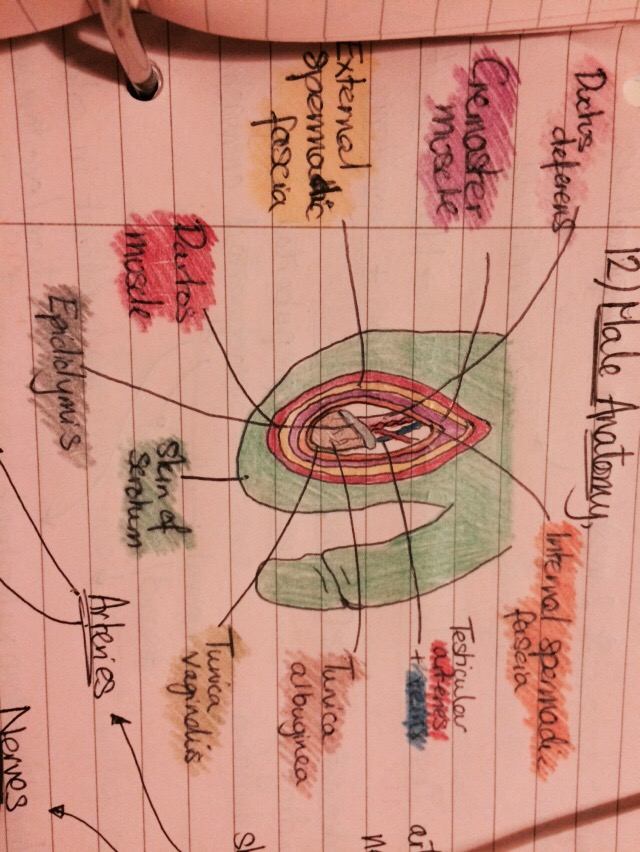 12) Male Anatomy,
Ductus
deferens
Cremaster
muscle
External
spermadic
fascia
Dartos
muscle
Epididymis
Skin of
Scrotum
Internal spermadic
fascia
Testicular
arteries
+ veins
Tunica
albuginea
Tunica
vaginalis
Arteries
Nerves